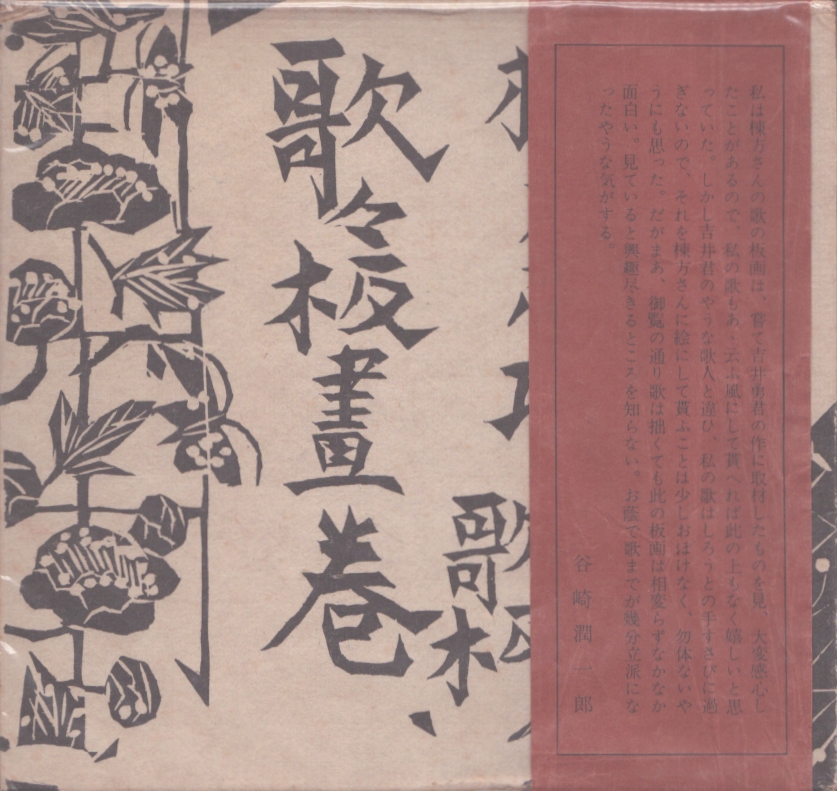 私は棟方さんの歌の板画は、嘗て吉井勇君の作に取材したものを見、大変感心し
たことがあるので、私の歌もあゝ云ふ風にして貰へれば此の上もなく嬉しいと思
つていた。しかし吉井君のやうな歌人と違ひ、私の歌はしろうとの手すさびに過
ぎないので、それを棟方さんに絵にして貰ふことは少しおほけなく、勿体ないや
うにも思つた。だがまあ、御覧の通り歌は拙くても此の板画は相変らずなかなか
面白い。見ていると興趣尽きるところを知らない。お蔭で歌までが幾分立派にな
つたやうな気がする。
谷崎潤一郎
歌々板畫巻
歌々板